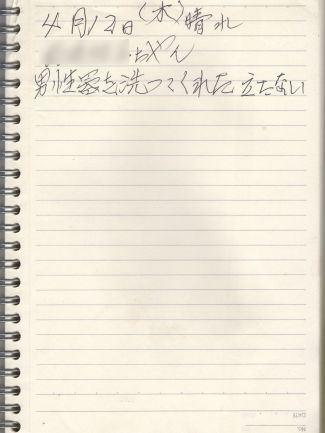 4月12日(木)晴れ
ちゃん
男性器を洗ってくれた 立たない
DATE
No.